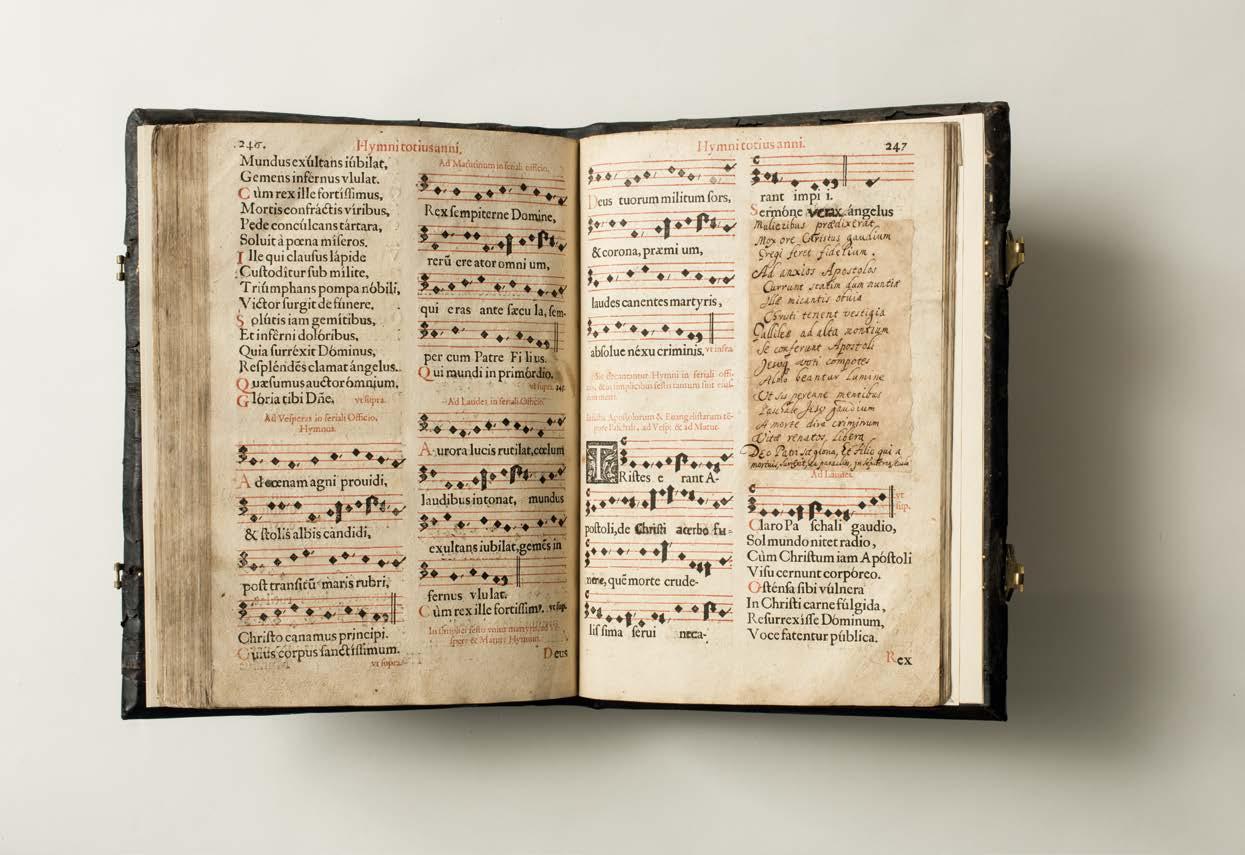 246.
Hymni totius anni.
Mundus exúltans iúbilat,
Gemens inférnus vlulat.
Cùm rex ille fortíssimus,
Mortis confráctis víribus,
Pede concúlcans tártara,
Soluit à pœna míseros.
Ille qui clausus lápide
Custoditur sub mílite,
Triúmphans pompa nóbili,
Victor surgit de fúnere.
Solútis iam gemítibus,
Et inférni dolóribus,
Quia surréxit Dóminus,
Respléndẽs clamat ángelus.
Quæsumus auctor ómnium,
Glória tibi Dñe. vt supra.
Ad Vesperas in feriali Officio,
Hymnus.
Ad cœnam agni prouidi,
& stolis albis candidi,
post transitũ maris rubri,
Christo canamus principi.
Cuius corpus sanctissimum.
vt supra.
Ad Matutinum in feriali officio.
Rex sempiterne Domine,
rerũ creator omnium,
qui eras ante sæcula, sem-
per cum Patre Filius.
Qui mundi in primórdio.
vt supra. 245
Ad Laudes in feriali Officio
Aurora lucis rutilat, cœlum
laudibus intonat, mundus
exultans iubilat, gemẽs in
fernus vlulat.
Cùm rex ille fortissim9. vt sup.
In simplici festo vnius martyris, ad Ve
speras & Matut. Hymnus.
Deus
Hymni totius anni.
247
Deus tuorum militum sors,
& corona, præmium,
laudes canentes martyris,
absolue néxu criminis. vt infra
Sic decantantur Hymni in feriali offi-
cio, & in simplicibus festis tantum
In festis Apostolorum & Euangelistarum tẽ-
pore Paschali, ad Vesp. & ad Matut.
TRistes erant A-
postoli, de Christi acerbo fu-
nere, quẽ morte crude-
lissima serui neca-
rant impii.
Sermóne verax ángelus
Mulieribus prædixerat
Mox ore Christus gaudium
Gregi feret fidelium.
Ad anxios Apostolos
Currunt statim dum nuntiæ
Illæ micantis obvia
Christi tenent vestigia
Galilææ ad alta montium
Se conferunt Apostoli
Jesuq voti compotes
Almo beantur Lumine
Ut sis perenne mentibus
Paschale Jesu gaudium
A morte dira criminum
Vitæ renatos libera
Deo Patri sit gloria, Et Filio qui a
mortuis surrexit, ac paraclito, in sempiterna sæcula
Ad Laudes.
vt
sup.
Claro Paschali gaudio,
Sol mundo nitet radio,
Cùm Christum iam Apóstoli
Visu cernunt corpóreo.
Osténsa sibi vúlnera
In Christi carne fúlgida,
Resurrexísse Dóminum,
Voce fatentur pública.
Rex